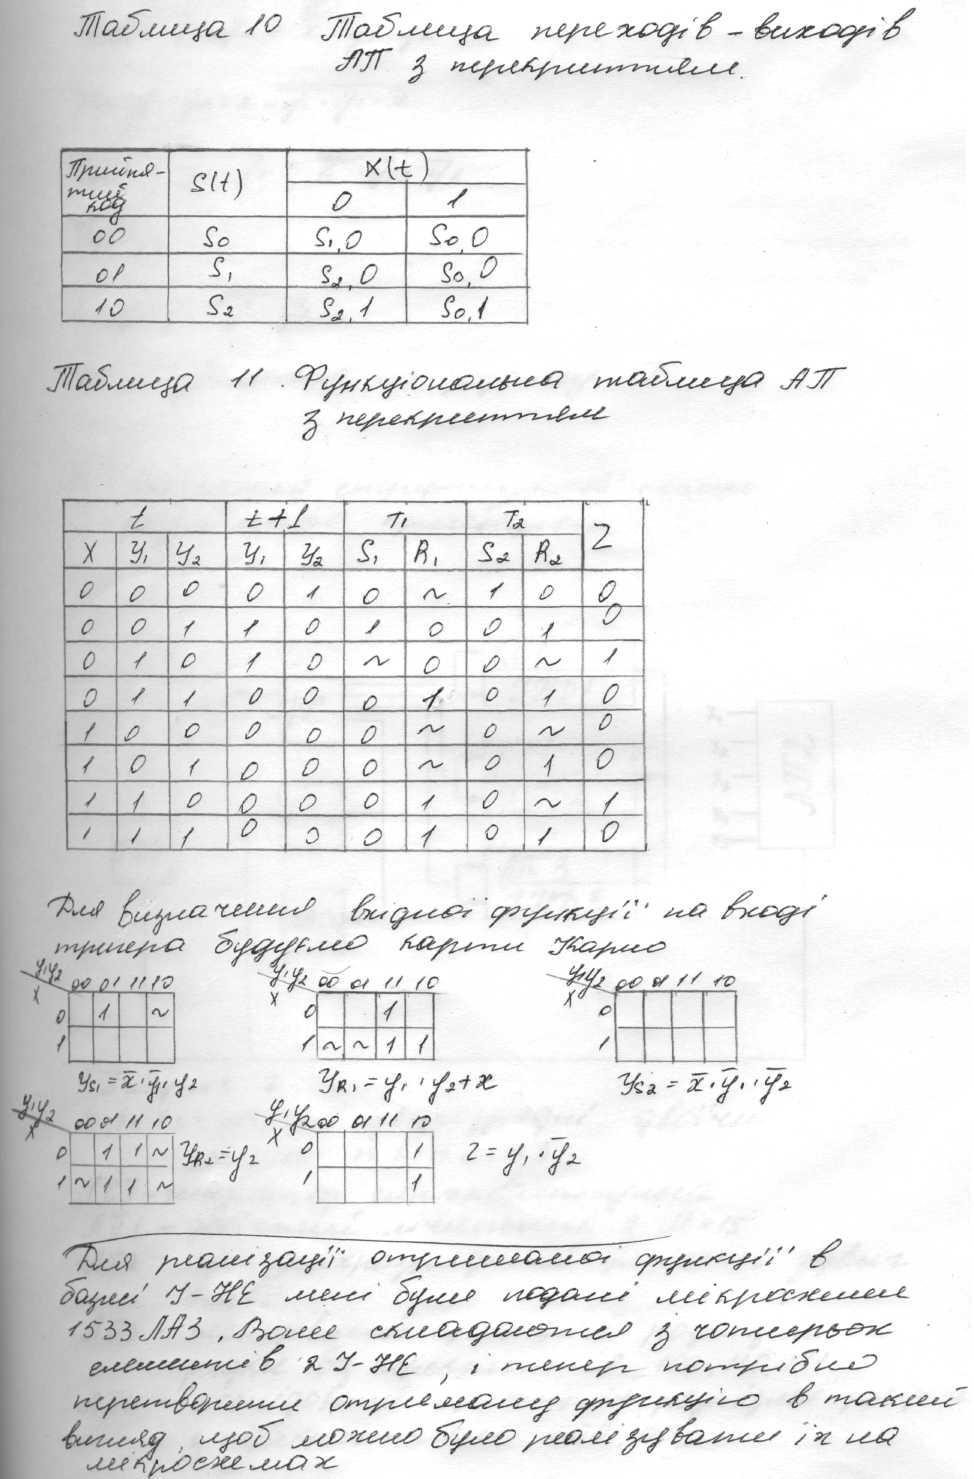 Таблиця 10 Таблиця переходів – виходів
АП з перекриттям.
Прийня- S(t) X(t)
тий
код 0 1
00 S0 S1,0 S0,0
01 S1 S2,0 S0,0
10 S2 S2,1 S0,1
Таблиця 11. Функціональна таблиця АП
з перекриттям
t t+1 T1 T2 Z
X Y1 Y2 Y1 Y2 S1 R1 S2 R2
0 0 0 0 1 0 ~ 1 0 0
0 0 1 1 0 1 0 0 1 0
0 1 0 1 0 ~ 0 0 ~ 1
0 1 1 0 0 0 1 0 1 0
1 0 0 0 0 0 ~ 0 ~ 0
1 0 1 0 0 0 ~ 0 1 0
1 1 0 0 0 0 1 0 ~ 1
1 1 1 0 0 0 1 0 1 0
Для визначення вхідної функції на вході
тригера будуємо карти Карно
y1y2 00 01 11 10 y1y2 00 01 11 10 y1y2 00 01 11 10
x x x
0 1 ~ 0 1 0
1 1 ~ ~ 1 1 1
yS1 = x̄·ȳ1·y2 yR1 = y1·y2+x yS2 = x̄·ȳ1·ȳ2
y1y2 00 01 11 10 y1y2 00 01 11 10
x x
0 1 1 ~ yR2 = y2 0 1 z = y1·ȳ2
1 ~ 1 1 ~ 1 1
Для реалізації отриманої функції в
базисі І-НЕ мені були подані мікросхеми
1533 ЛА3. Вони складаються з чотирьох
елементів 2 І-НЕ, і тепер потрібно
перетворити отриману функцію в такий
вигляд, щоб можно було реалізувати їх на
мікросхемах